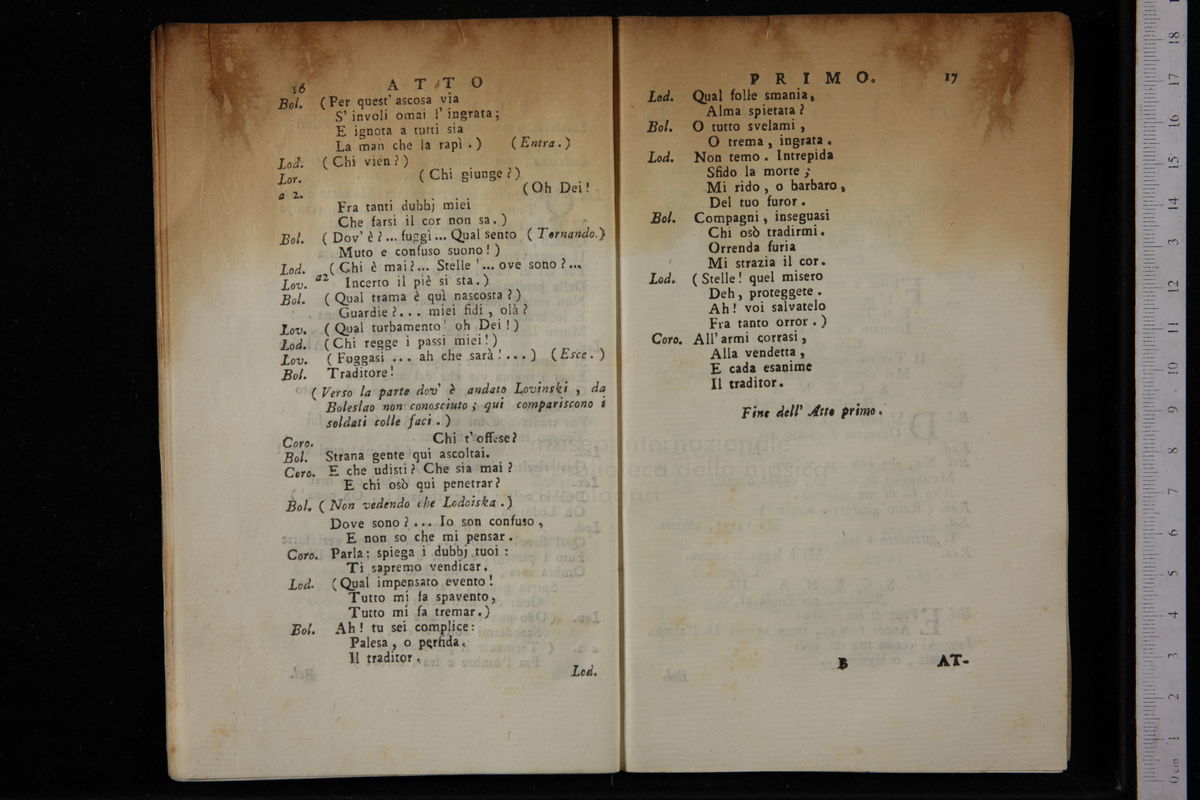 16 ATTO
Bol. (Per quest' ascosa via
S' involi omai l' ingrata;
E ignota a tutti sia
La man che la rapì.) (Entra.)
Lod. (Chi vien?)
Lor. (Chi giunge?)
a 2. (Oh Dei!
Fra tanti dubbj miei
Che farsi il cor non sa.)
Bol. (Dov' è?... fuggì... Qual sento (Tornando.)
Muto e confuso suono!)
Lod. (Chi è mai?... Stelle!... ove sono?...
Lov. a2 Incerto il piè si sta.)
Bol. (Qual trama è quì nascosta?)
Guardie?... miei fidi, olà?
Lov. (Qual turbamento! oh Dei!)
Lod. (Chi regge i passi miei!)
Lov. (Fuggasi ... ah che sarà!...) (Esce.)
Bol. Traditore!
(Verso la parte dov' è andato Lovinski, da
Boleslao non conosciuto; qui compariscono i
soldati colle faci.)
Coro. Chi t' offese?
Bol. Strana gente qui ascoltai.
Coro. E che udisti? Che sia mai?
E chi osò qui penetrar?
Bol. (Non vedendo che Lodoiska.)
Dove sono?... Io son confuso,
E non so che mi pensar.
Coro. Parla: spiega i dubbj tuoi:
Ti sapremo vendicar.
Lod. (Qual impensato evento!
Tutto mi fa spavento,
Tutto mi fa tremar.)
Bol. Ah! tu sei complice:
Palesa, o perfida,
Il traditor.
Lod.
PRIMO. 17
Lod. Qual folle smania,
Alma spietata?
Bol. O tutto svelami,
O trema, ingrata.
Lod. Non temo. Intrepida
Sfido la morte;
Mi rido, o barbaro,
Del tuo furor.
Bol. Compagni, inseguasi
Chi osò tradirmi.
Orrenda furia
Mi strazia il cor.
Lod. (Stelle! quel misero
Deh, proteggete.
Ah! voi salvatelo
Fra tanto orror.)
Coro. All' armi corrasi,
Alla vendetta,
E cada esanime
Il traditor.
Fine dell' Atto primo.
B AT-
museo internazionale
biblioteca della musica
bologna